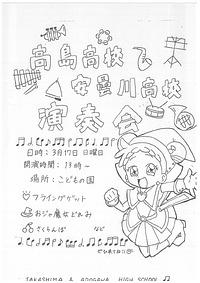 高島高校と
安曇川高校
演奏会
日時：3月17日 日曜日
開演時間：13時～
場所：こどもの国
フライングゲット
おジャ魔女どれみ
さくらんぼ など
ぜひ来てね！
TAKASHIMA & ADOGAWA HIGH SCHOOL